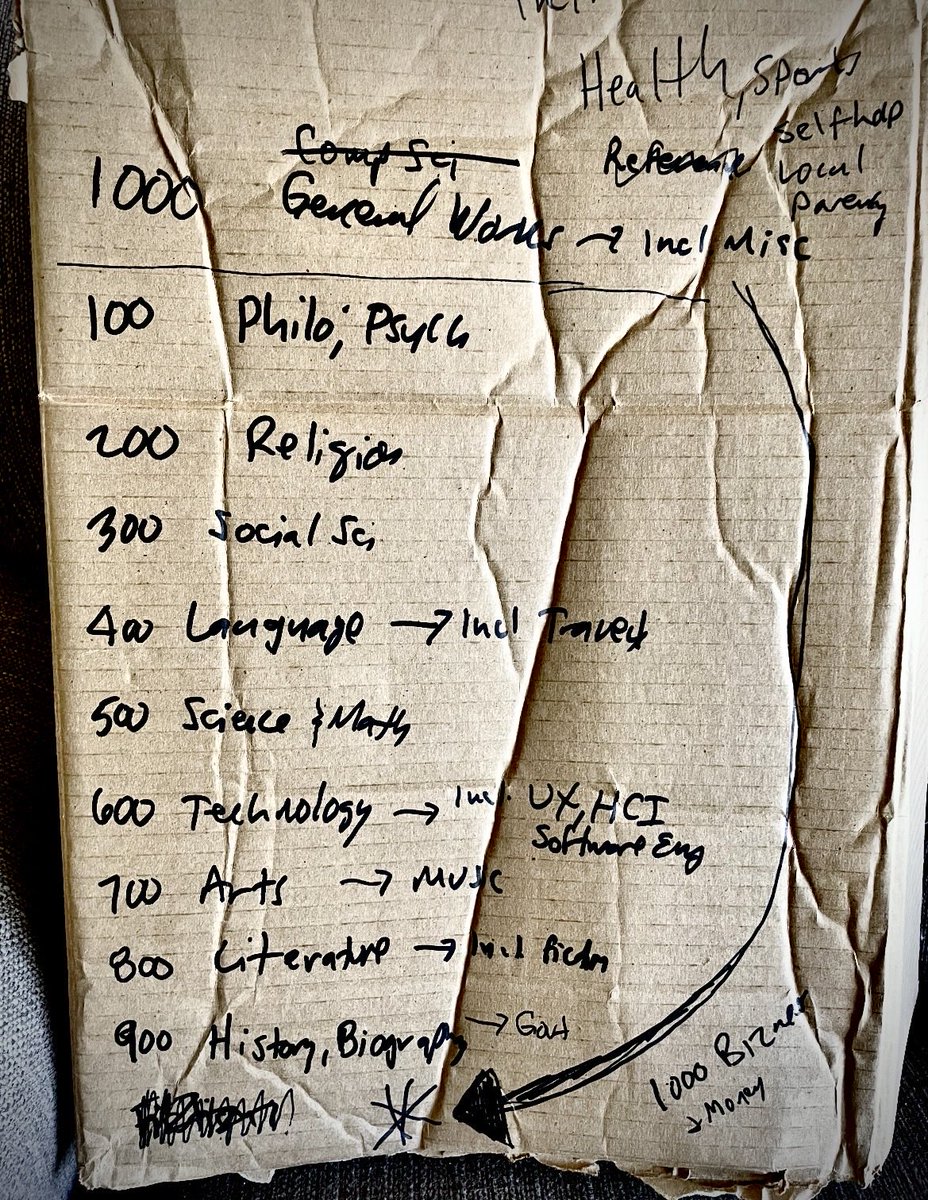 Health, Sports
selfhelp
Local
Parenty
Comp Sci
Reference
1000 General Works → Incl Misc
100 Philo; Psych
200 Religion
300 Social Sci
400 Language → Incl Travel
500 Science & Math
600 Technology → Incl. UX, HCI
Software Eng
700 Arts → Music
800 Literature → Incl Fictn
900 History, Biography → Govt
1000 Bizness
→ Money